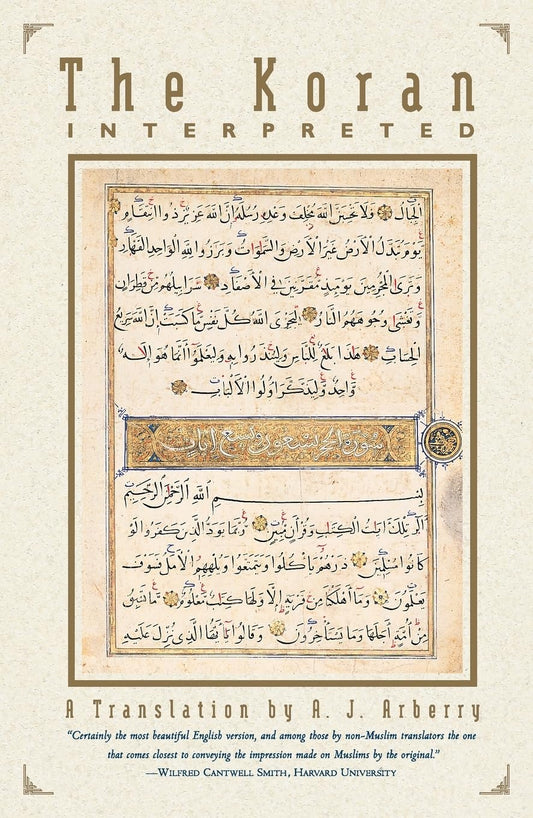 The Koran
INTERPRETED
الْجِبَالُ فَلَا تَحْسَبَنَّ اللَّهَ مُخْلِفَ وَعْدِهِ رُسُلَهُ إِنَّ اللَّهَ عَزِيزٌ ذُو انْتِقَامٍ
يَوْمَ تُبَدَّلُ الْأَرْضُ غَيْرَ الْأَرْضِ وَالسَّمَوَاتُ وَبَرَزُوا لِلَّهِ الْوَاحِدِ الْقَهَّارِ
وَتَرَى الْمُجْرِمِينَ يَوْمَئِذٍ مُقَرَّنِينَ فِي الْأَصْفَادِ سَرَابِيلُهُمْ مِنْ قَطِرَانٍ
وَتَغْشَى وُجُوهَهُمُ النَّارُ لِيَجْزِيَ اللَّهُ كُلَّ نَفْسٍ مَا كَسَبَتْ إِنَّ اللَّهَ سَرِيعُ
الْحِسَابِ هَذَا بَلَاغٌ لِلنَّاسِ وَلِيُنْذَرُوا بِهِ وَلِيَعْلَمُوا أَنَّمَا هُوَ إِلَهٌ
وَاحِدٌ وَلِيَذَّكَّرَ أُولُوا الْأَلْبَابِ
سورة الحجر تسعون وتسع آيات
بِسْمِ اللَّهِ الرَّحْمَنِ الرَّحِيمِ
الر تِلْكَ آيَتُ الْكِتَابِ وَقُرْآنٍ مُبِينٍ رُبَمَا يَوَدُّ الَّذِينَ كَفَرُوا لَوْ
كَانُوا مُسْلِمِينَ ذَرْهُمْ يَأْكُلُوا وَيَتَمَتَّعُوا وَيُلْهِهِمُ الْأَمَلُ فَسَوْفَ
يَعْلَمُونَ وَمَا أَهْلَكْنَا مِنْ قَرْيَةٍ إِلَّا وَلَهَا كِتَابٌ مَعْلُومٌ مَا تَسْبِقُ
مِنْ أُمَّةٍ أَجَلَهَا وَمَا يَسْتَأْخِرُونَ وَقَالُوا يَا أَيُّهَا الَّذِي نُزِّلَ عَلَيْهِ
A Translation by A. J. Arberry
“Certainly the most beautiful English version, and among those by non-Muslim translators the one
that comes closest to conveying the impression made on Muslims by the original.”
—WILFRED CANTWELL SMITH, HARVARD UNIVERSITY